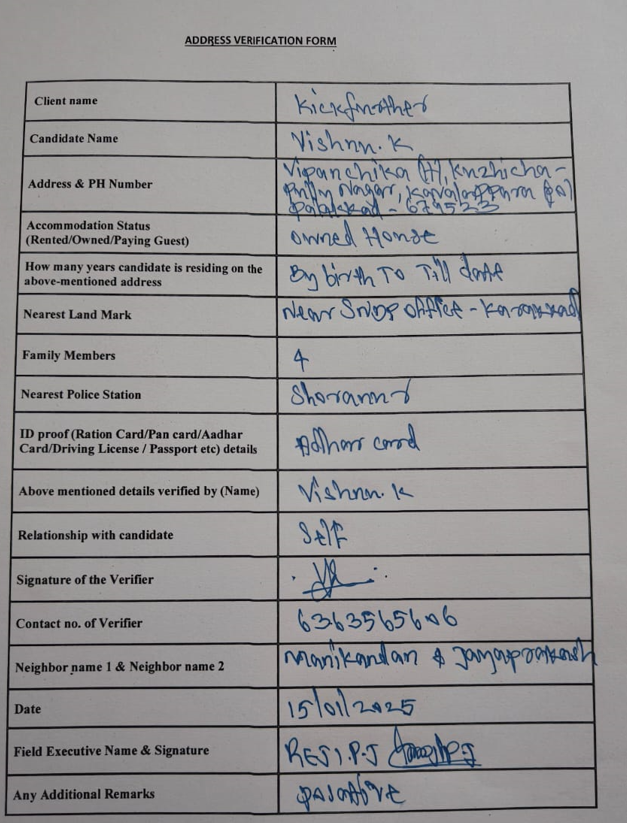 ADDRESS VERIFICATION FORM
Client name Kickfurther
Candidate Name Vishnu. K
Address & PH Number Vipanchika (H), Kuzhicha-
Nagar, Kavalappara (po)
Palakkad - 679523
Accommodation Status owned House
(Rented/Owned/Paying Guest)
How many years candidate is residing on the By birth To Till date
above-mentioned address
Nearest Land Mark Near SNDP office - Karakkad
Family Members 4
Nearest Police Station Shoranur
ID proof (Ration Card/Pan card/Aadhar Adhar card
Card/Driving License / Passport etc) details
Above mentioned details verified by (Name) Vishnu. K
Relationship with candidate Self
Signature of the Verifier
Contact no. of Verifier 6363565606
Neighbor name 1 & Neighbor name 2 Manikandan & Jayaprakash
Date 15/01/2025
Field Executive Name & Signature REJI.P.J
Any Additional Remarks positive